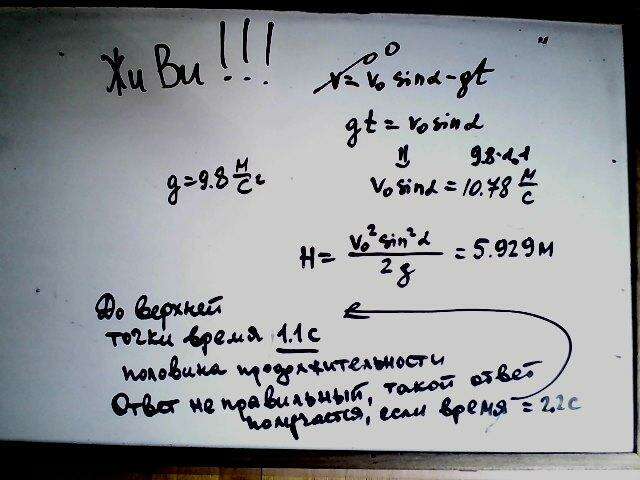 Живи!!!
v = v₀ sinα - gt
0
gt = v₀ sinα
⇓ 9.8·1.1
g = 9.8 м/с²
v₀ sinα = 10.78 м/с
H = v₀² sin²α / 2g = 5.929 м
До верхней
точки время 1.1 с
половина продолжительности
Ответ не правильный, такой ответ
получается, если время = 2.2 с